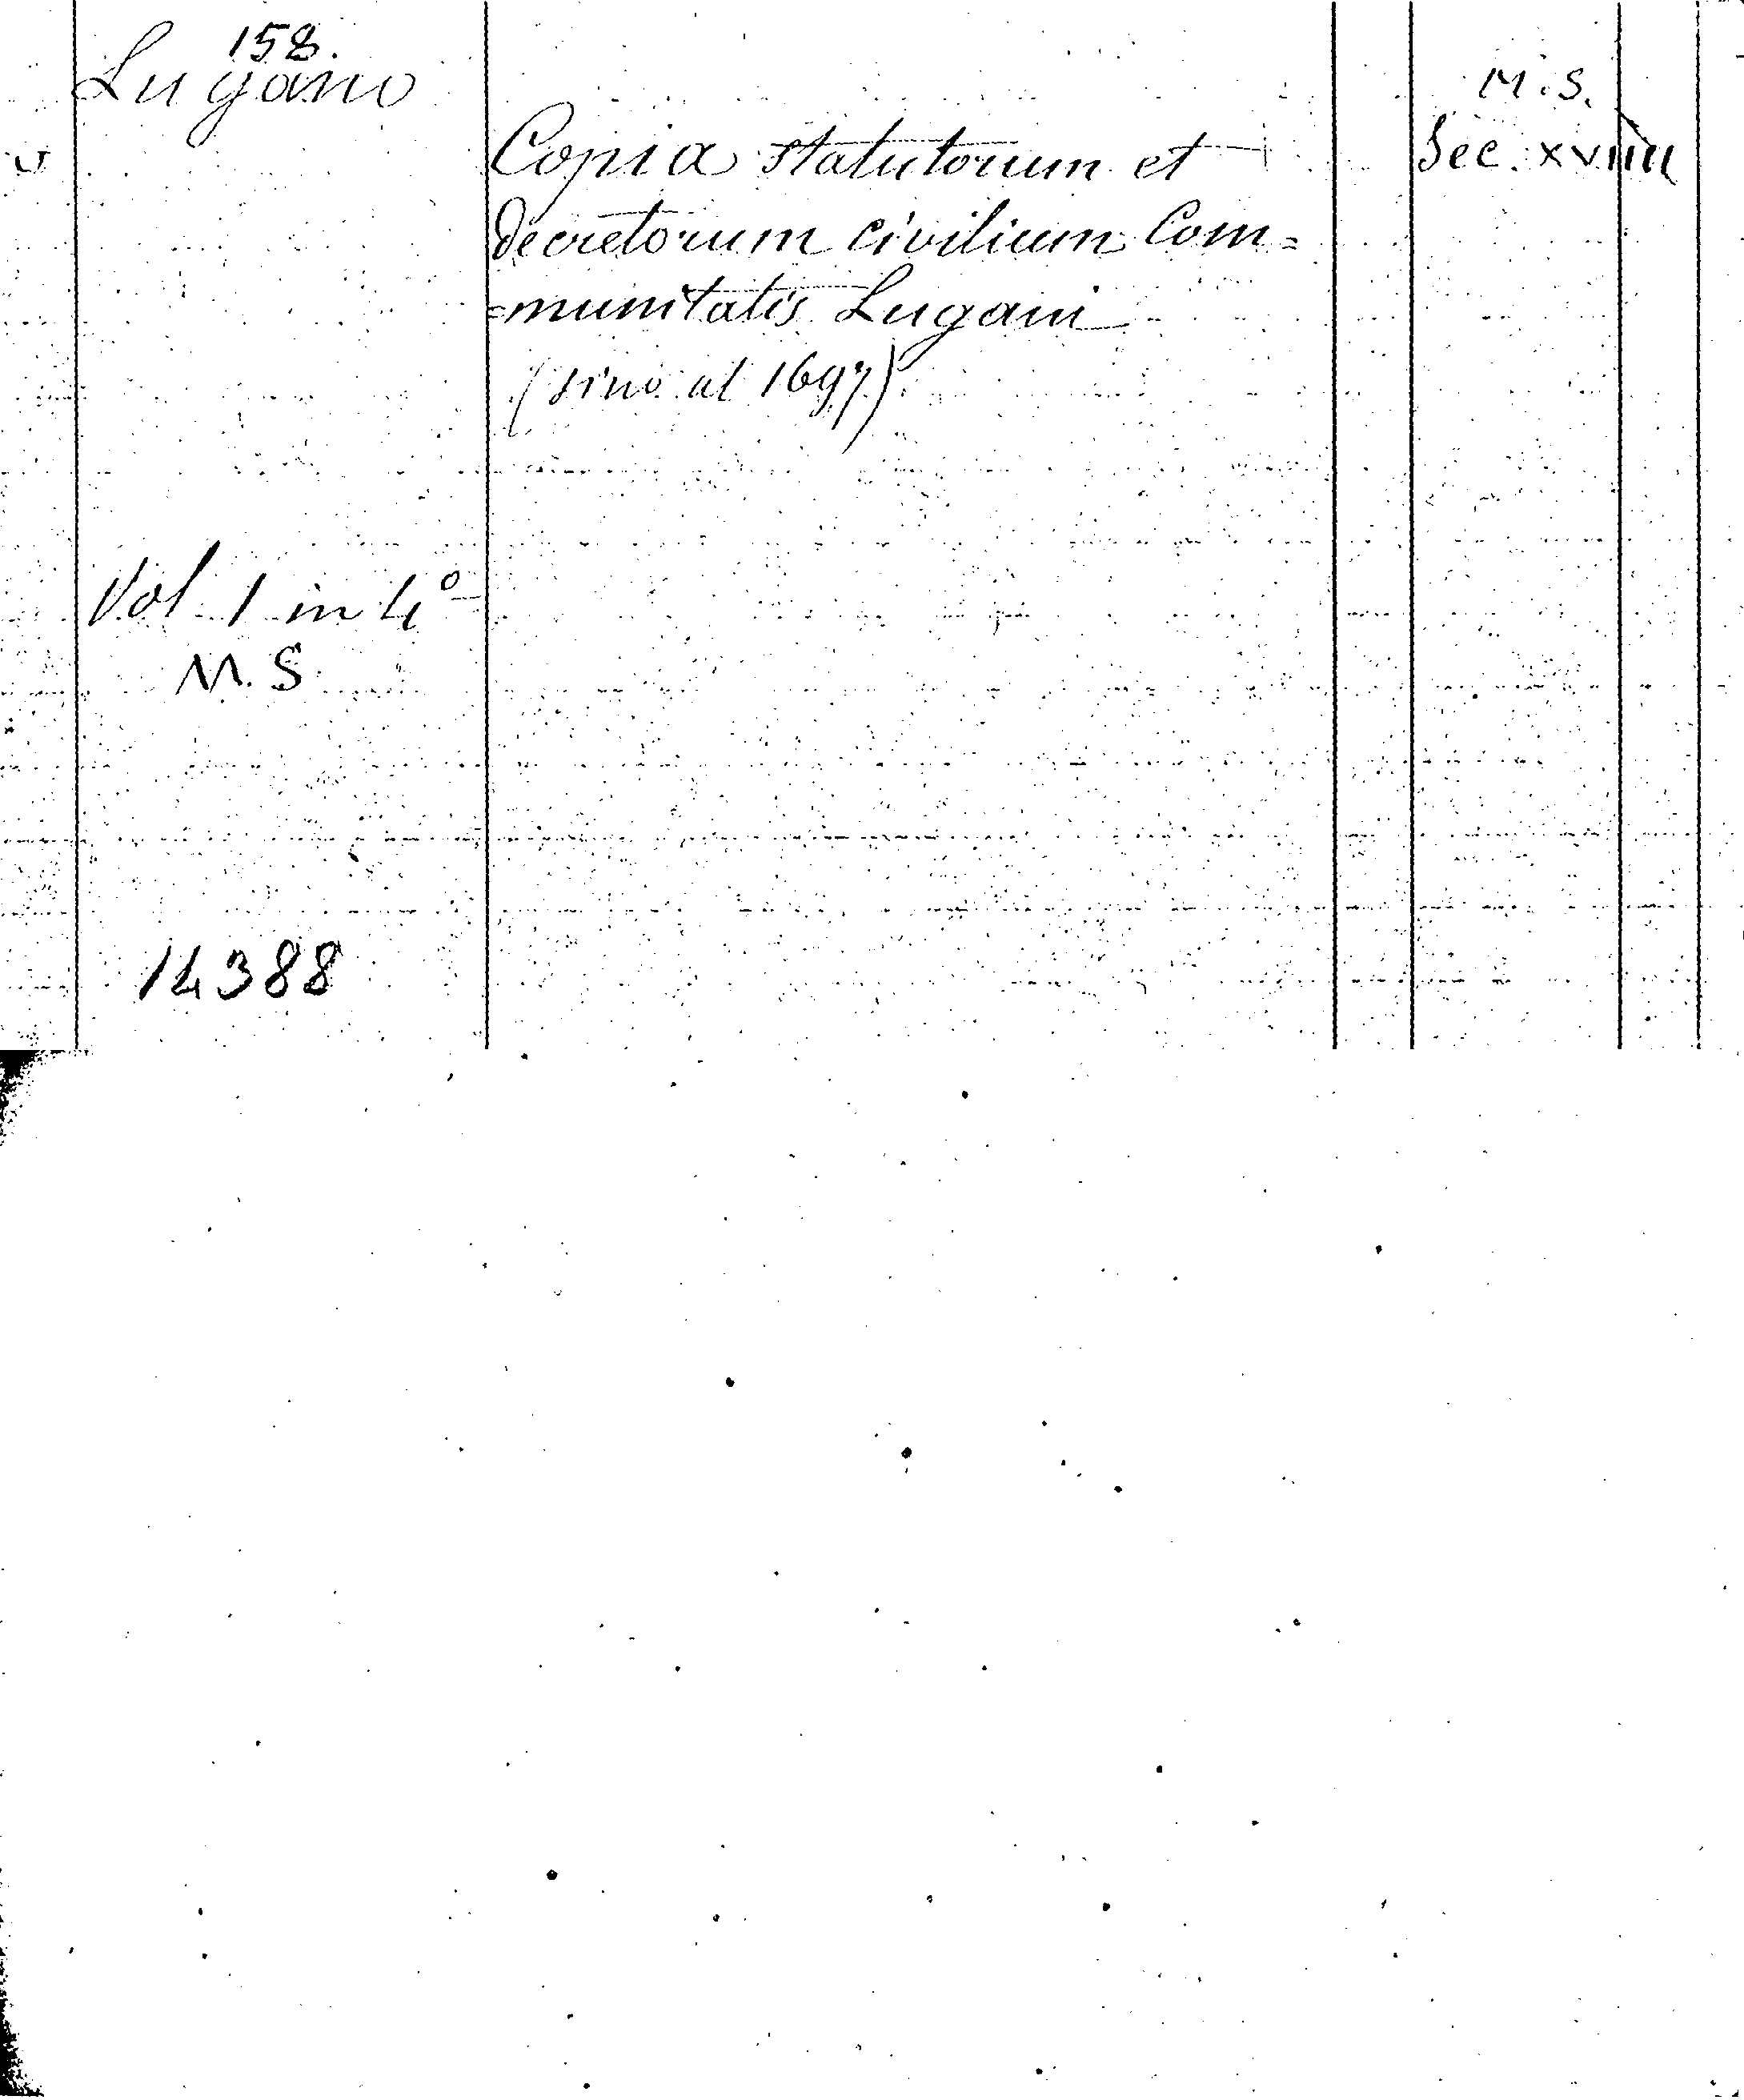 158.
Lugano
M.S.
Copia statutorum et
Sec. XVIII
decretorum civilium Com=
=munitatis Lugani
(sino al 1697)
Vol. 1 in 4°
M.S.
14388